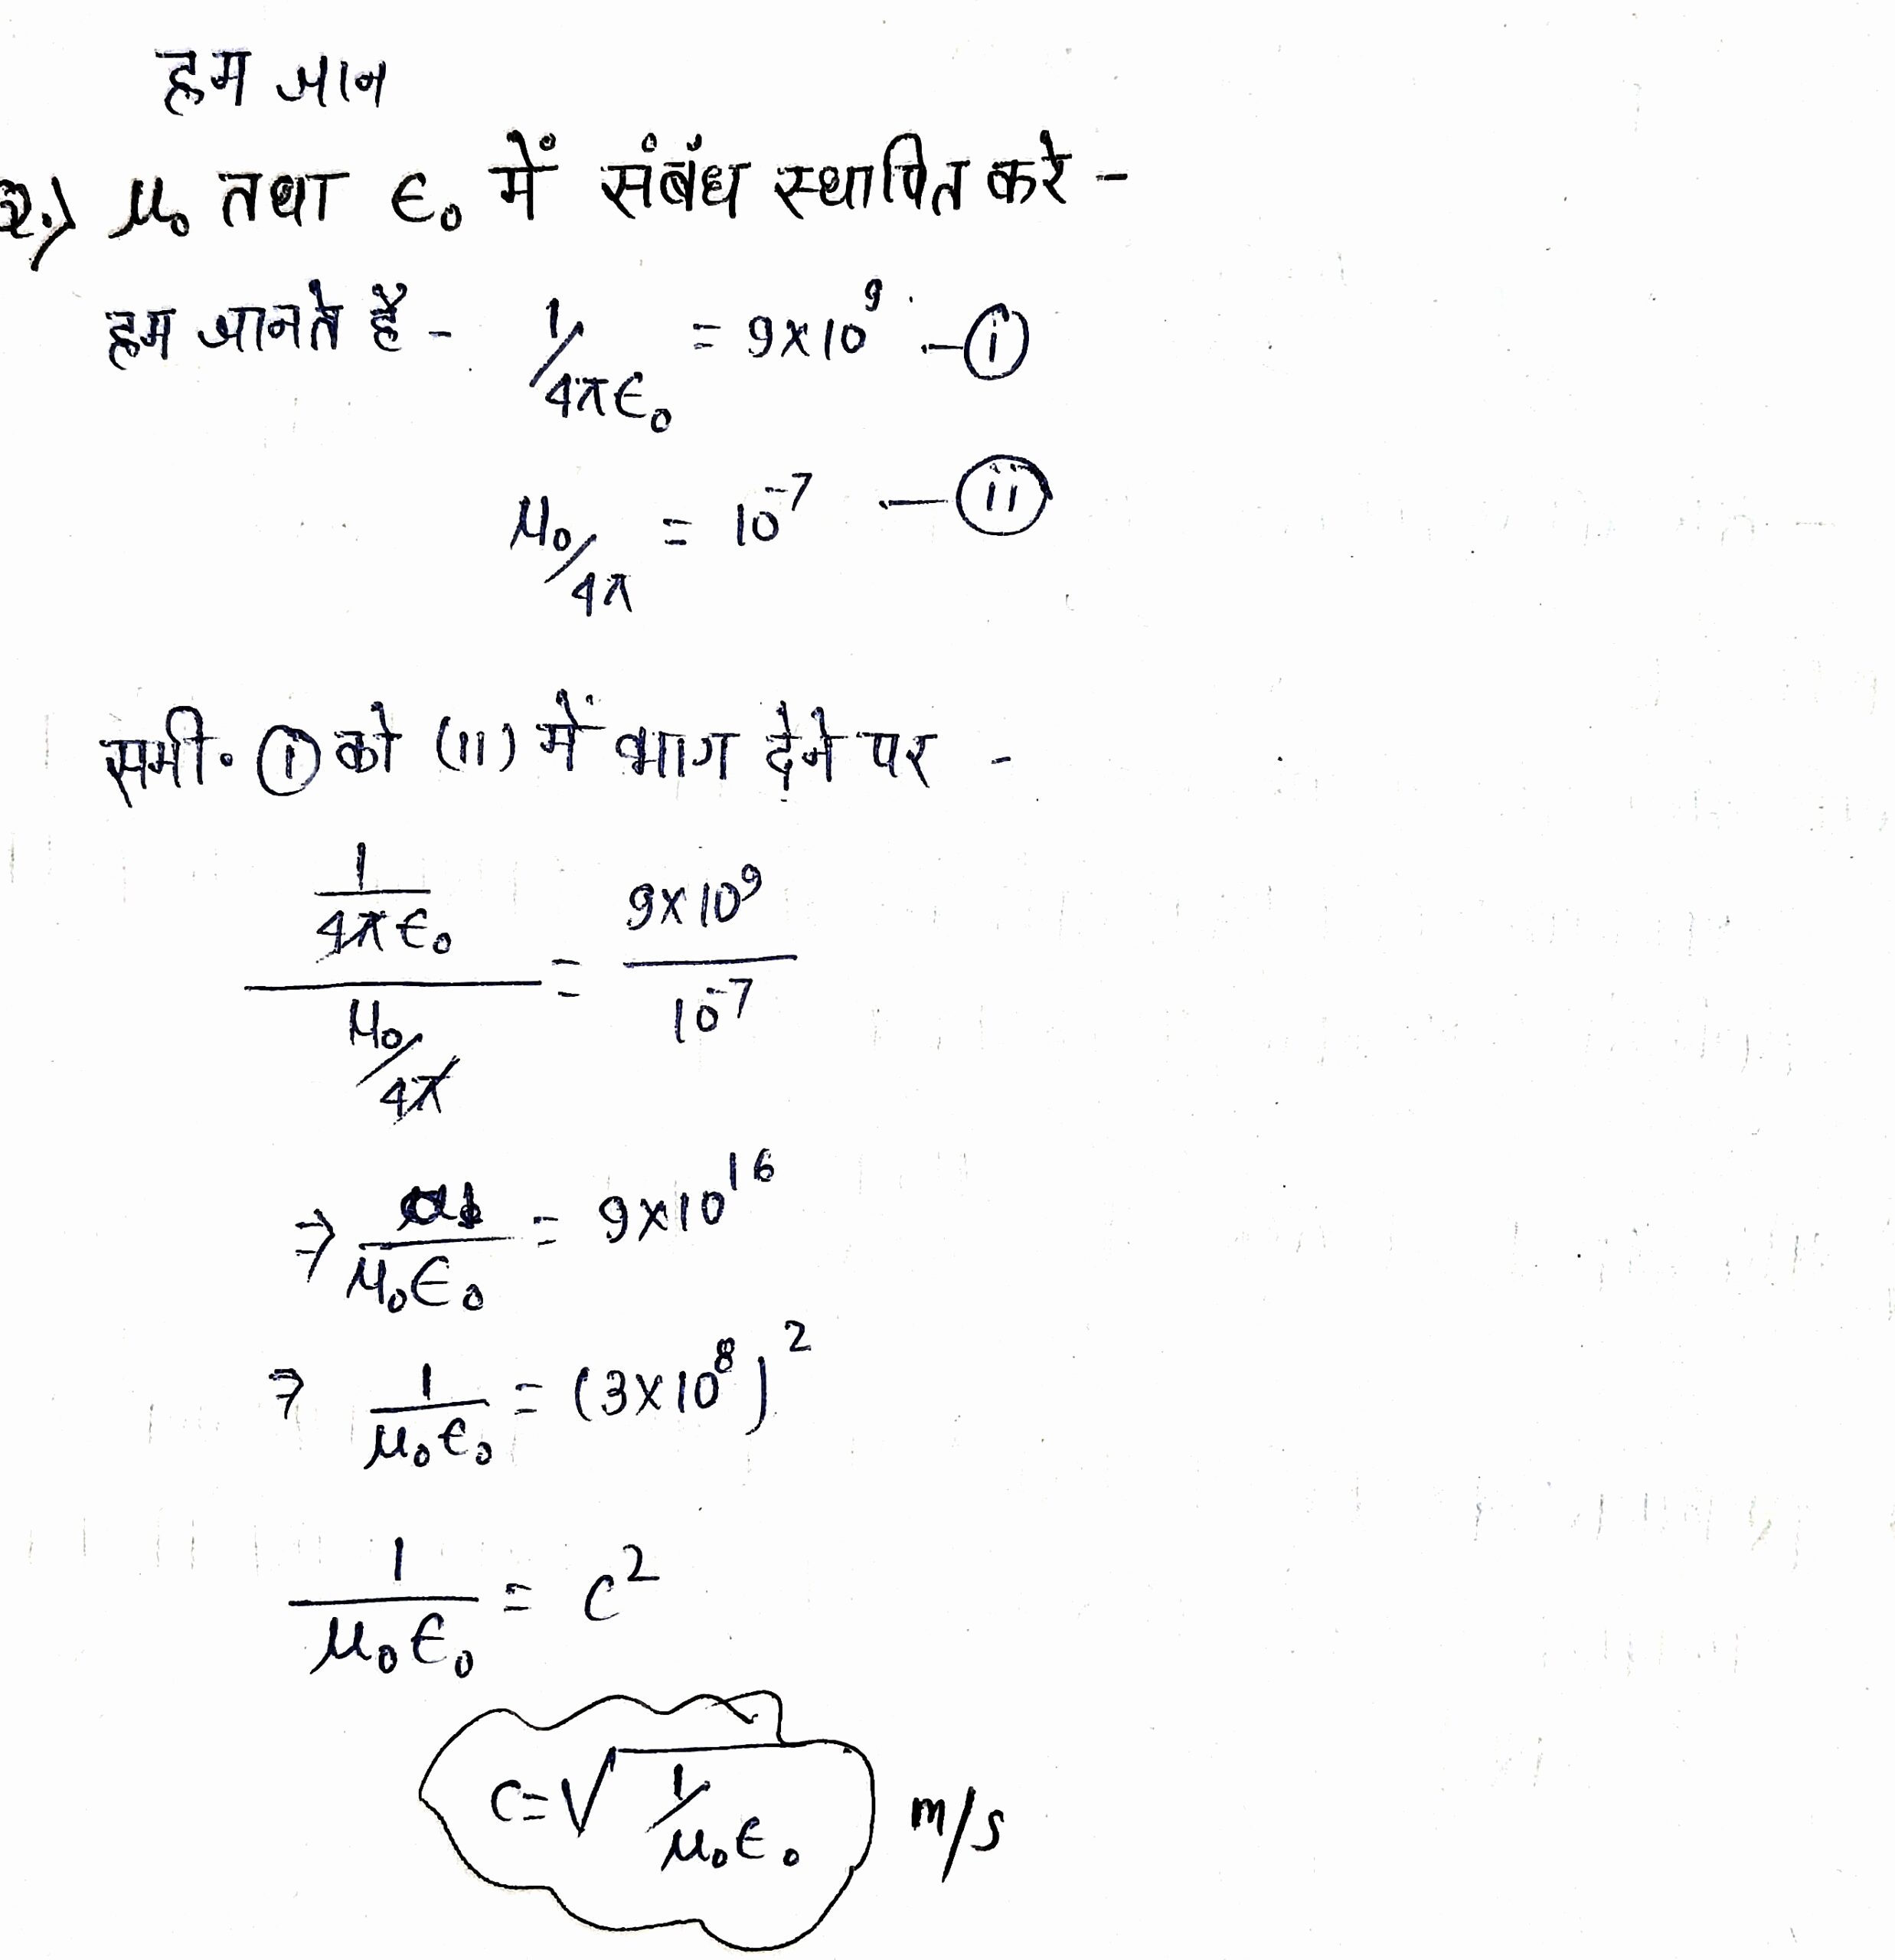 हम जान
2.) μ₀ तथा ϵ₀ में संबंध स्थापित करे -
हम जानते हैं - 1/4πϵ₀ = 9×10⁹ - (i)
μ₀/4π = 10⁻⁷ - (ii)
समी. (i) को (ii) में भाग देने पर -
(1/4πϵ₀)/(μ₀/4π) = 9×10⁹/10⁻⁷
⇒ 1/μ₀ϵ₀ = 9×10¹⁶
⇒ 1/μ₀ϵ₀ = (3×10⁸)²
1/μ₀ϵ₀ = c²
c = √(1/μ₀ϵ₀) m/s